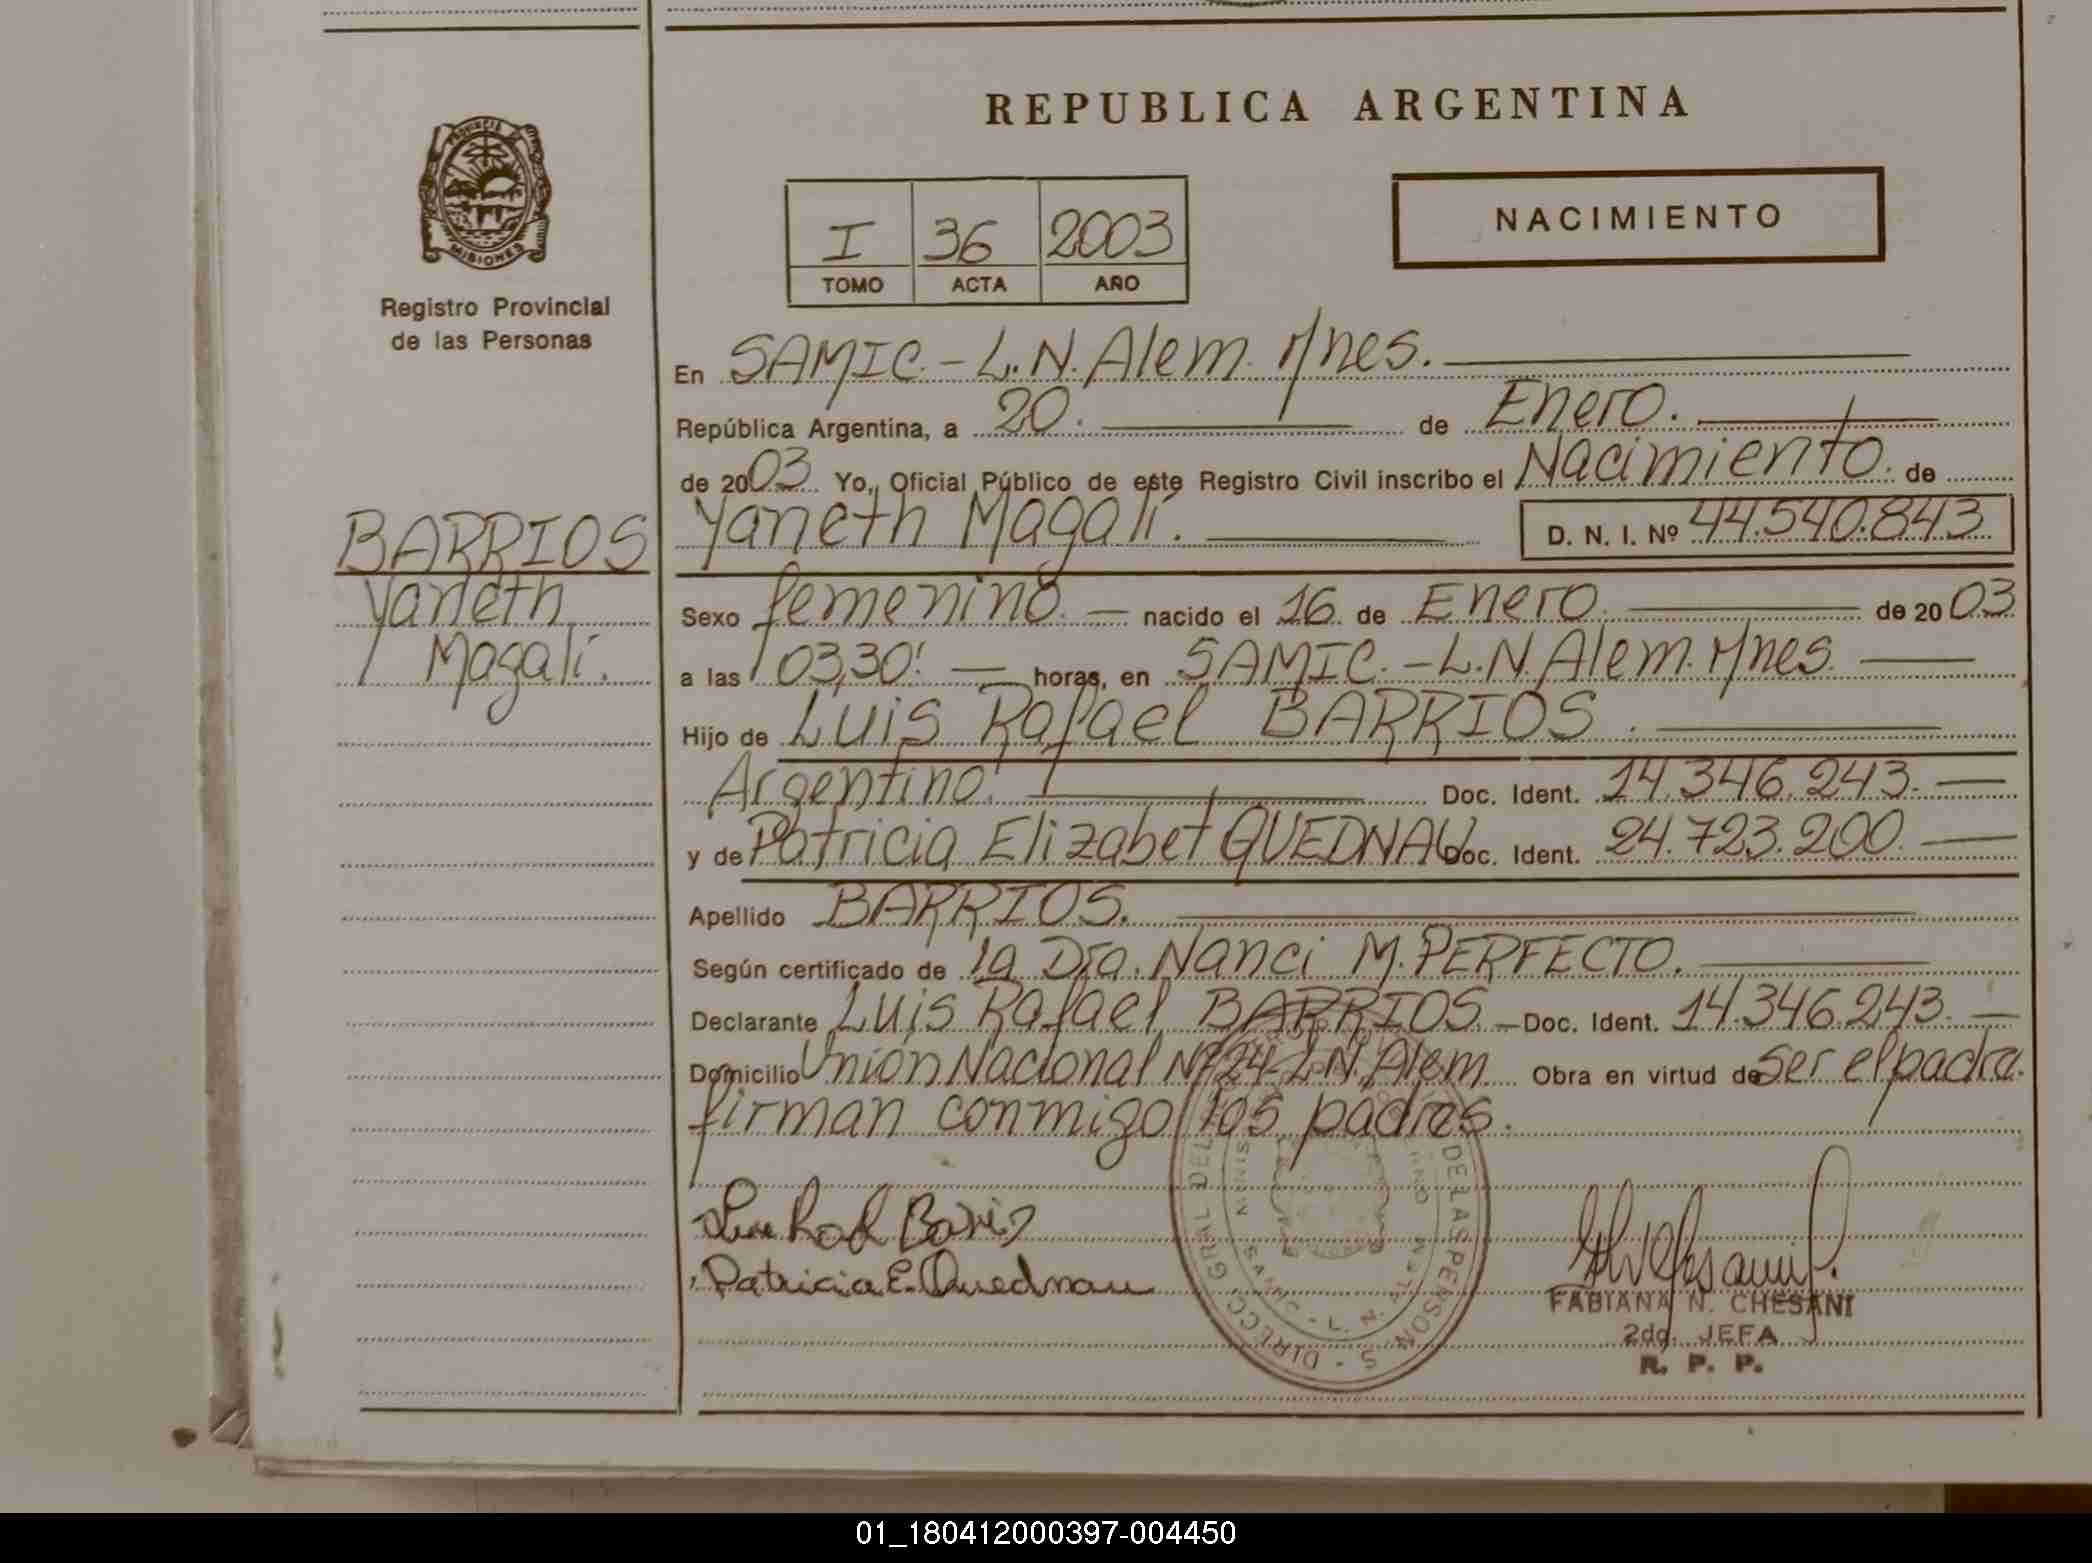 REPUBLICA ARGENTINA
PROVINCIA DE
MISIONES
Registro Provincial
de las Personas
NACIMIENTO
I 36 2003
TOMO ACTA AÑO
En SAMIC.- L.N. Alem. Mnes.
República Argentina, a 20. de Enero.
de 2003 Yo, Oficial Público de este Registro Civil inscribo el Nacimiento. de
BARRIOS
Yaneth
Magalí.
Yaneth Magalí. D. N. I. Nº 44.540.843
Sexo femenino. nacido el 16 de Enero. de 2003
a las 03,30! horas, en SAMIC.- L.N. Alem. Mnes.
Hijo de Luis Rafael BARRIOS.
Argentino. Doc. Ident. 14.346.243.
y de Patricia Elizabet QUEDNAU Doc. Ident. 24.723.200.
Apellido BARRIOS.
Según certificado de la Dra. Nanci M. PERFECTO.
Declarante Luis Rafael BARRIOS. Doc. Ident. 14.346.243.
Domicilio Unión Nacional Nº 724- L.N. Alem. Obra en virtud de ser el padre.
firman conmigo los padres.
Patricia E. Quednau
DIRECC. GRAL DEL DE LAS PERSONAS
SAMIC - L. N. ALEM
FABIANA N. CHESANI
2da. JEFA
R. P. P.
01_180412000397-004450